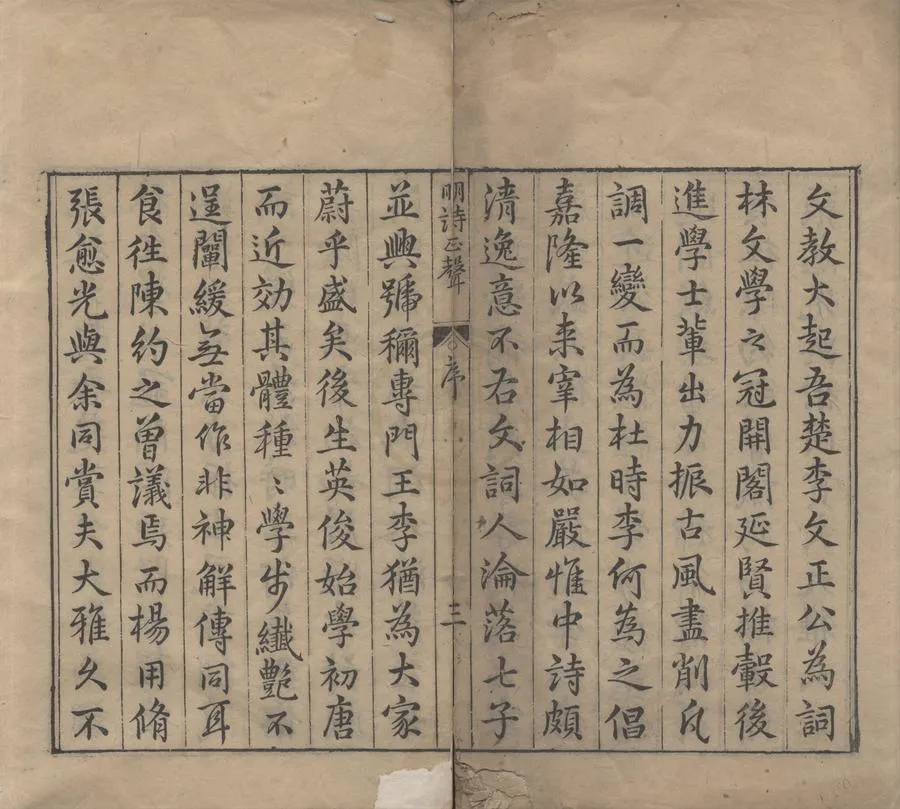 文教大起吾楚李文正公為詞
林文學之冠開閣延賢推轂後
進學士輩出力振古風盡削凡
調一變而為杜時李何為之倡
嘉隆以来宰相如嚴惟中詩頗
清逸意不右文詞人淪落七子
明詩正聲
序
三
並興號稱專門王李猶為大家
蔚乎盛矣後生英俊始學初唐
而近效其體種〻學步纖艷不
逞闡緩無當作非神解傳同耳
食徃陳約之曾議焉而楊用脩
張愈光與余同賞夫大雅久不